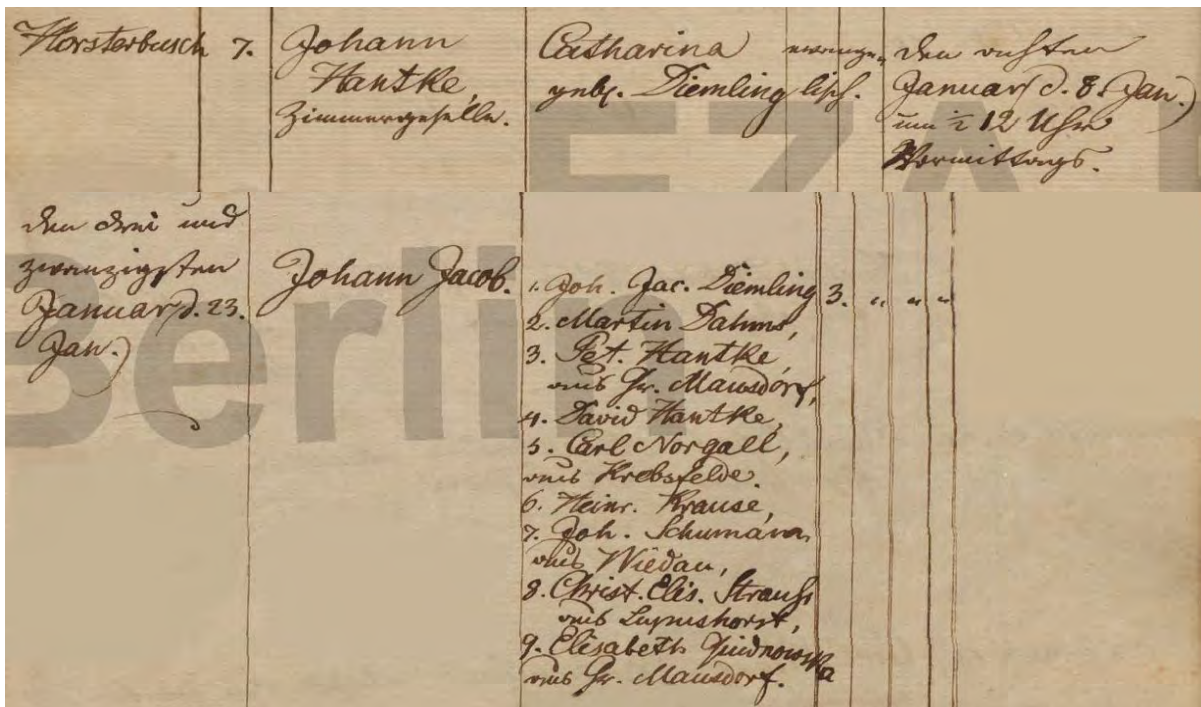 Horsterbusch
7.
Johann
Hantke,
Zimmergeselle.
Catharina
geb. Diemling
evange-
lisch.
den achten
Januar (d. 8. Jan.)
um ½ 12 Uhr
Vormittags.
den drei und
zwanzigsten
Januar (d. 23.
Jan.)
Johann Jacob.
1. Joh. Jac. Diemling
2. Martin Dahms,
3. Pet. Hantke
aus Gr. Mausdorf,
4. David Hantke,
5. Carl Norgall,
aus Krebsfelde.
6. Heinr. Krause,
7. Joh. Schumann
aus Wiedau,
8. Christ. Elis. Strauss
aus Lupushorst,
9. Elisabeth
aus Gr. Mausdorf.
3. " " "
EZA
Berlin